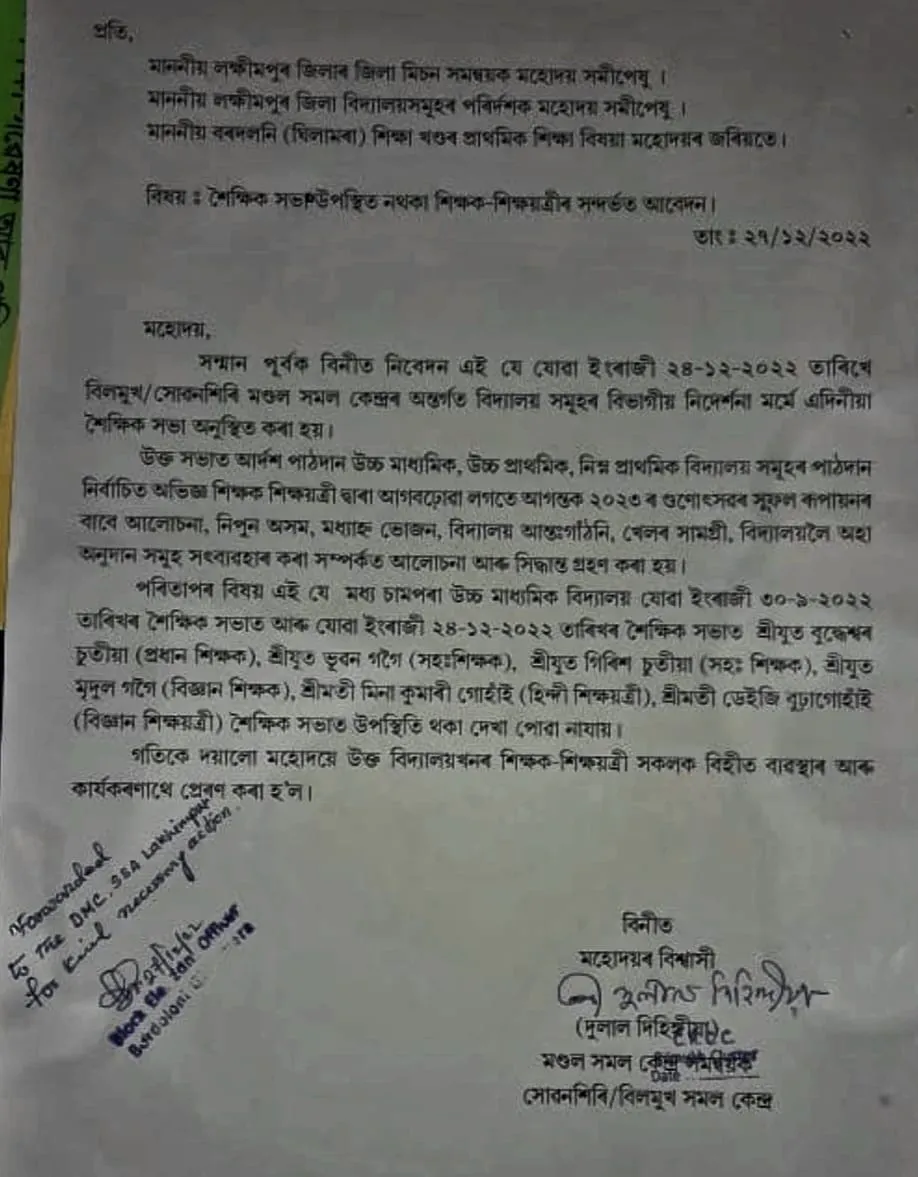 প্ৰতি,
মাননীয় লক্ষীমপুৰ জিলাৰ জিলা মিচন সমন্বয়ক মহোদয় সমীপেষু ।
মাননীয় লক্ষীমপুৰ জিলা বিদ্যালয়সমূহৰ পৰিৰ্দশক মহোদয় সমীপেষু ।
মাননীয় বৰদলনি (ঘিলামৰা) শিক্ষা খণ্ডৰ প্ৰাথমিক শিক্ষা বিষয়া মহোদয়ৰ জৰিয়তে।
বিষয় ঃ শৈক্ষিক সভাউপস্থিত নথকা শিক্ষক-শিক্ষয়ত্ৰীৰ সন্দৰ্ভত আবেদন।
তাং ঃ ২৭/১২/২০২২
মহোদয়,
সন্মান পূৰ্বক বিনীত নিবেদন এই যে যোৱা ইংৰাজী ২৪-১২-২০২২ তাৰিখে
বিলমুখ/সোৱনশিৰি মণ্ডল সমল কেন্দ্ৰৰ অন্তৰ্গত বিদ্যালয় সমূহৰ বিভাগীয় নিদেৰ্শনা মৰ্মে এদিনীয়া
শৈক্ষিক সভা অনুস্থিত কৰা হয়।
উক্ত সভাত আৰ্দশ পাঠদান উচ্চ মাধ্যমিক, উচ্চ প্ৰাথমিক, নিম্ন প্ৰাথমিক বিদ্যালয় সমূহৰ পাঠদান
নিৰ্বাচিত অভিজ্ঞ শিক্ষক শিক্ষয়ত্ৰী দ্বাৰা আগবঢ়োৱা লগতে আগন্তক ২০২৩ ৰ গুণোৎসৱৰ সূফল ৰূপায়নৰ
বাবে আলোচনা, নিপুন অসম, মধ্যাহ্ন ভোজন, বিদ্যালয় আন্তঃগাঁঠনি, খেলৰ সামগ্ৰী, বিদ্যালয়লৈ অহা
অনুদান সমূহ সৎব্যৱহাৰ কৰা সম্পৰ্কত আলোচনা আৰু সিদ্ধান্ত গ্ৰহণ কৰা হয়।
পৰিতাপৰ বিষয় এই যে মধ্য চামপৰা উচ্চ মাধ্যমিক বিদ্যালয় যোৱা ইংৰাজী ৩০-৯-২০২২
তাৰিখৰ শৈক্ষিক সভাত আৰু যোৱা ইংৰাজী ২৪-১২-২০২২ তাৰিখৰ শৈক্ষিক সভাত শ্ৰীযুত বুদ্ধেশ্বৰ
চুতীয়া (প্ৰধান শিক্ষক), শ্ৰীযুত ভুবন গগৈ (সহঃশিক্ষক), শ্ৰীযুত গিৰিশ চুতীয়া (সহঃ শিক্ষক), শ্ৰীযুত
মৃদুল গগৈ (বিজ্ঞান শিক্ষক), শ্ৰীমতী মিনা কুমাৰী গোহাঁই (হিন্দী শিক্ষয়ত্ৰী), শ্ৰীমতী ডেইজি বুঢ়াগোহাঁই
(বিজ্ঞান শিক্ষয়ত্ৰী) শৈক্ষিক সভাত উপস্থিতি থকা দেখা পোৱা নাযায়।
গতিকে দয়ালো মহোদয়ে উক্ত বিদ্যালয়খনৰ শিক্ষক-শিক্ষয়ত্ৰী সকলক বিহীত ব্যৱস্থাৰ আৰু
কাৰ্যকৰণাথে প্ৰেৰণ কৰা হ'ল।
Forwarded
to the DMC. SSA Lakhimpur
for kind necessary action.
27/12/22
Block Officer
Bordoloni
বিনীত
মহোদয়ৰ বিশ্বাসী
দুলাল দিহিঙ্গীয়া
(দুলাল দিহিঙ্গীয়া)
CRCC
মণ্ডল সমল কেন্দ্ৰ সমন্বয়ক
Date
সোৱনশিৰি/বিলমুখ সমল কেন্দ্ৰ